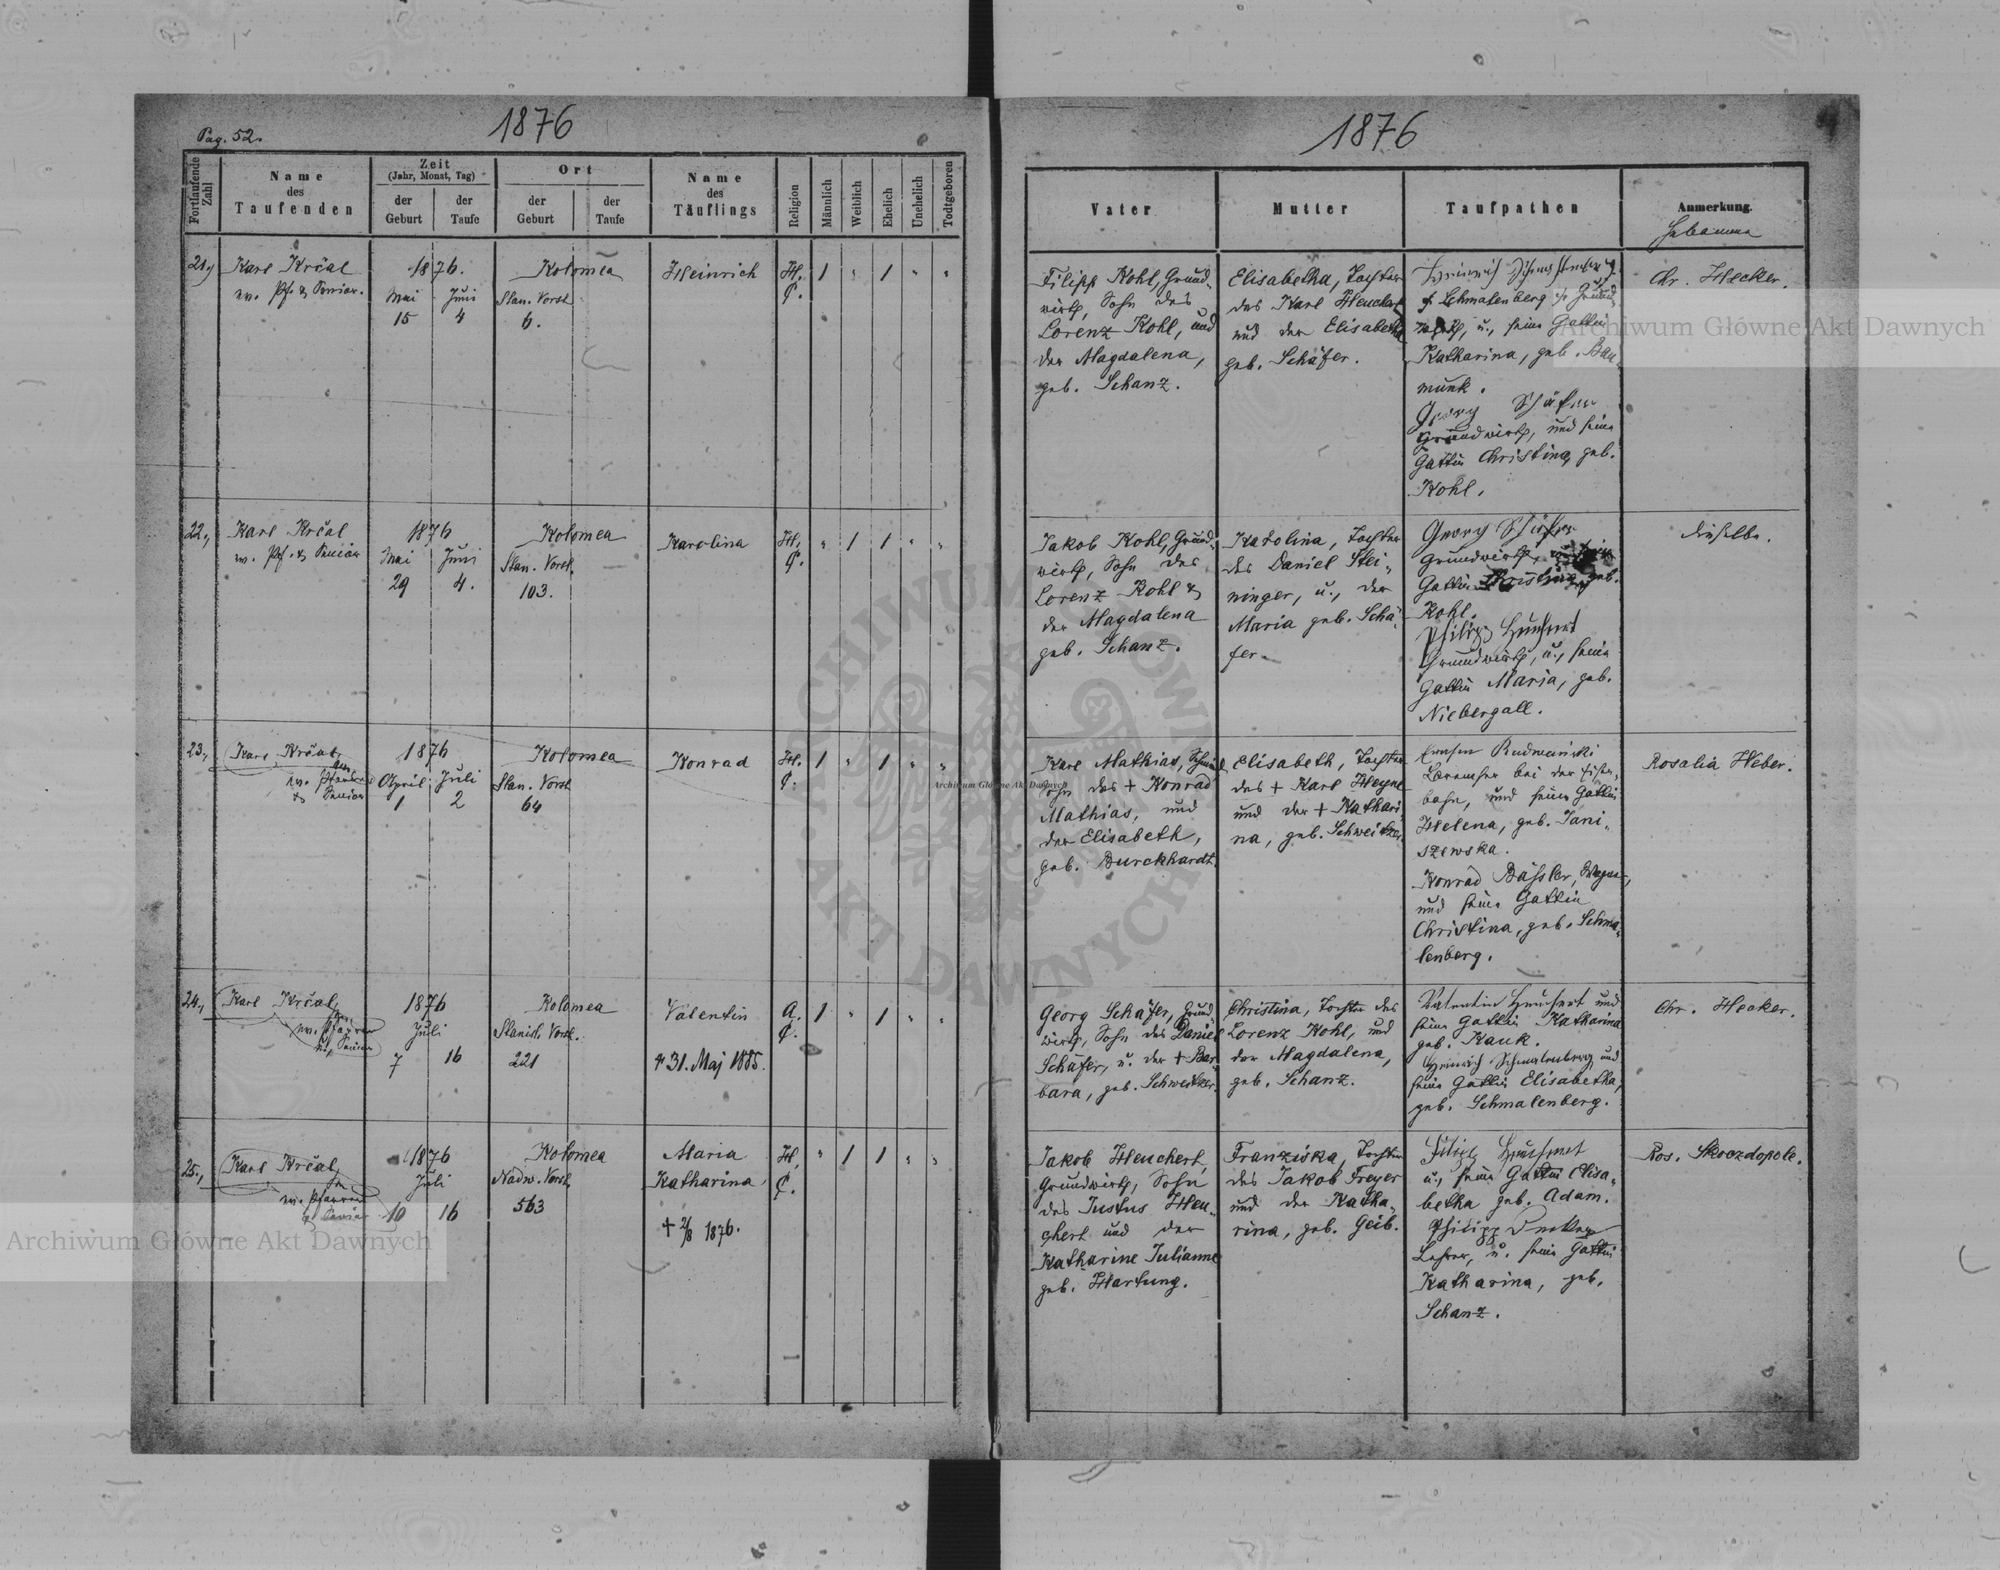 Pag. 52.
1876
1876
Fortlaufende Zahl
Name des Taufenden
Zeit
(Jahr, Monat, Tag)
der Geburt
der Taufe
Ort
der Geburt
der Taufe
Name des Täuflings
Religion
Männlich
Weiblich
Ehelich
Unehelich
Todtgeboren
Vater
Mutter
Taufpathen
Anmerkung.
Hebamme
21.,
Karl Krčal
ev. Pf. & Senior.
1876.
Mai
15
Juni
4
Kolomea
Stan. Vorst.
6.
Heinrich
H. C.
1 " 1 " "
Filipp Kohl, Grund-
wirth, Sohn des
Lorenz Kohl, und
der Magdalena,
geb. Schanz.
Elisabetha, Tochter
des Karl Heuchert
und der Elisabetha
geb. Schäfer.
Schmalenberg Grund-
wirth, u., seine Gattin
Katharina, geb. Bau-
munk.
Georg Schäfer
Grundwirth, und seine
Gattin Christina, geb.
Kohl.
Chr. Hecker.
22.,
Karl Krčal
ev. Pf. & Senior
1876
Mai
29
Juni
4.
Kolomea
Stan. Vorst.
103.
Karolina
H. C.
" 1 1 " "
Jakob Kohl, Grund-
wirth, Sohn des
Lorenz Kohl &
der Magdalena
geb. Schanz.
Karolina, Tochter
des Daniel Stei-
ninger, u., der
Maria geb. Schä-
fer.
Georg Schäfer
Grundwirth, u. seine
Gattin Christina, geb.
Kohl.
Philipp Heuchert
Grundwirth, u., seine
Gattin Maria, geb.
Niebergall.
dieselbe.
23.,
Karl Krčal,
ev. Pfarrer
& Senior
1876
April
1
Juli
2
Kolomea
Stan. Vorst
64
Konrad
H. C.
1 " 1 " "
Karl Mathias, Schmied
Sohn des + Konrad
Mathias, und
der Elisabeth,
geb. Burckhardt.
Elisabeth, Tochter
des + Karl Heyne
und der + Kathari-
na, geb. Schweitzer.
Rudwański
bei der Eisen-
bahn, und seine Gattin
Helena, geb. Jani-
szewska.
Konrad Bäßler, Wagner,
und seine Gattin
Christina, geb. Schma-
lenberg.
Rosalia Heber.
24.,
Karl Krčal,
ev. Pfarrer
u., Senior
1876
Juli
7
16
Kolomea
Stanisl. Vorst.
221
Valentin
+ 31. Maj 1885.
A. C.
1 " 1 " "
Georg Schäfer, Grund-
wirth, Sohn des Daniel
Schäfer, u. der + Bar-
bara, geb. Schweitzer.
Christina, Tochter des
Lorenz Kohl, und
der Magdalena,
geb. Schanz.
Valentin Heuchert und
seine Gattin Katharina
geb. Kauk.
Heinrich Schmalenberg und
seine Gattin Elisabetha,
geb. Schmalenberg.
Chr. Hecker.
25.,
Karl Krčal,
ev. Pfarrer
& Senior
1876
Juli
10
16
Kolomea
Nadw. Vorst.
563
Maria
Katharina
+ 2/8 1876.
H. C.
" 1 1 " "
Jakob Heuchert,
Grundwirth, Sohn
des Justus Heu-
chert und der
Katharine Julianne
geb. Hartung.
Franziska, Tochter
des Jakob Freyer
und der Katha-
rina, geb. Geib.
Filipp Heuchert
u., seine Gattin Elisa-
betha geb. Adam.
Philipp
Lehrer, u. seine Gattin
Katharina, geb.
Schanz.
Ros. Skoczdopole.
Archiwum Główne Akt Dawnych
Archiwum Główne Akt Dawnych
Archiwum Główne Akt Dawnych
ARCHIWUM GŁÓWNE AKT DAWNYCH